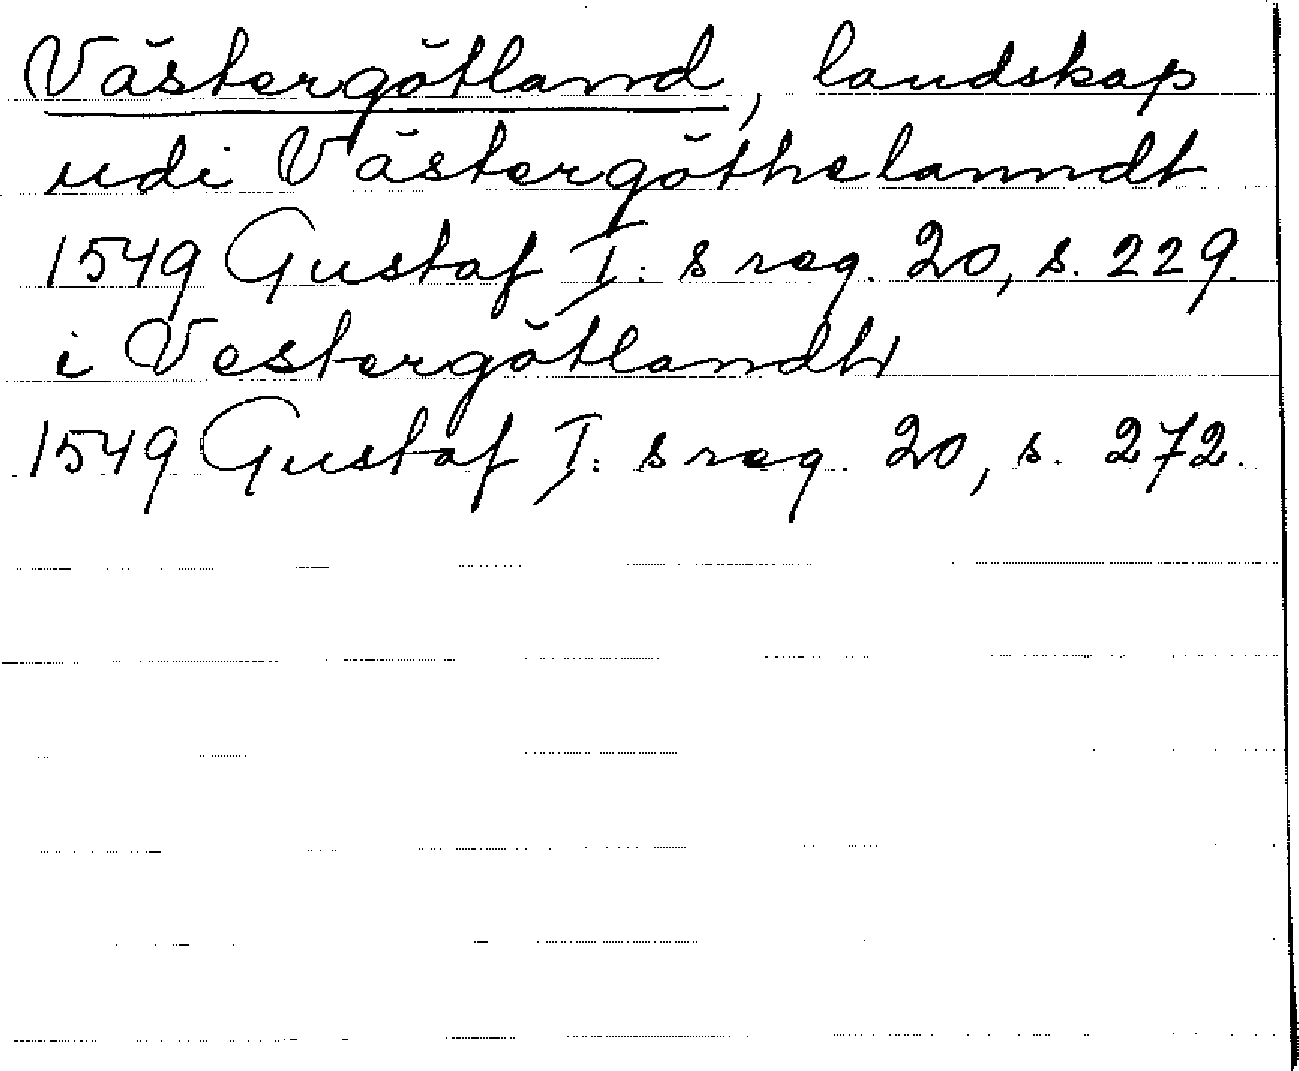 Västergötland, landskap
udi Västergöthelanndt
1549 Gustaf I: s reg. 20, s. 229.
i Vestergötlandh
1549 Gustaf I: s reg. 20, s. 272.